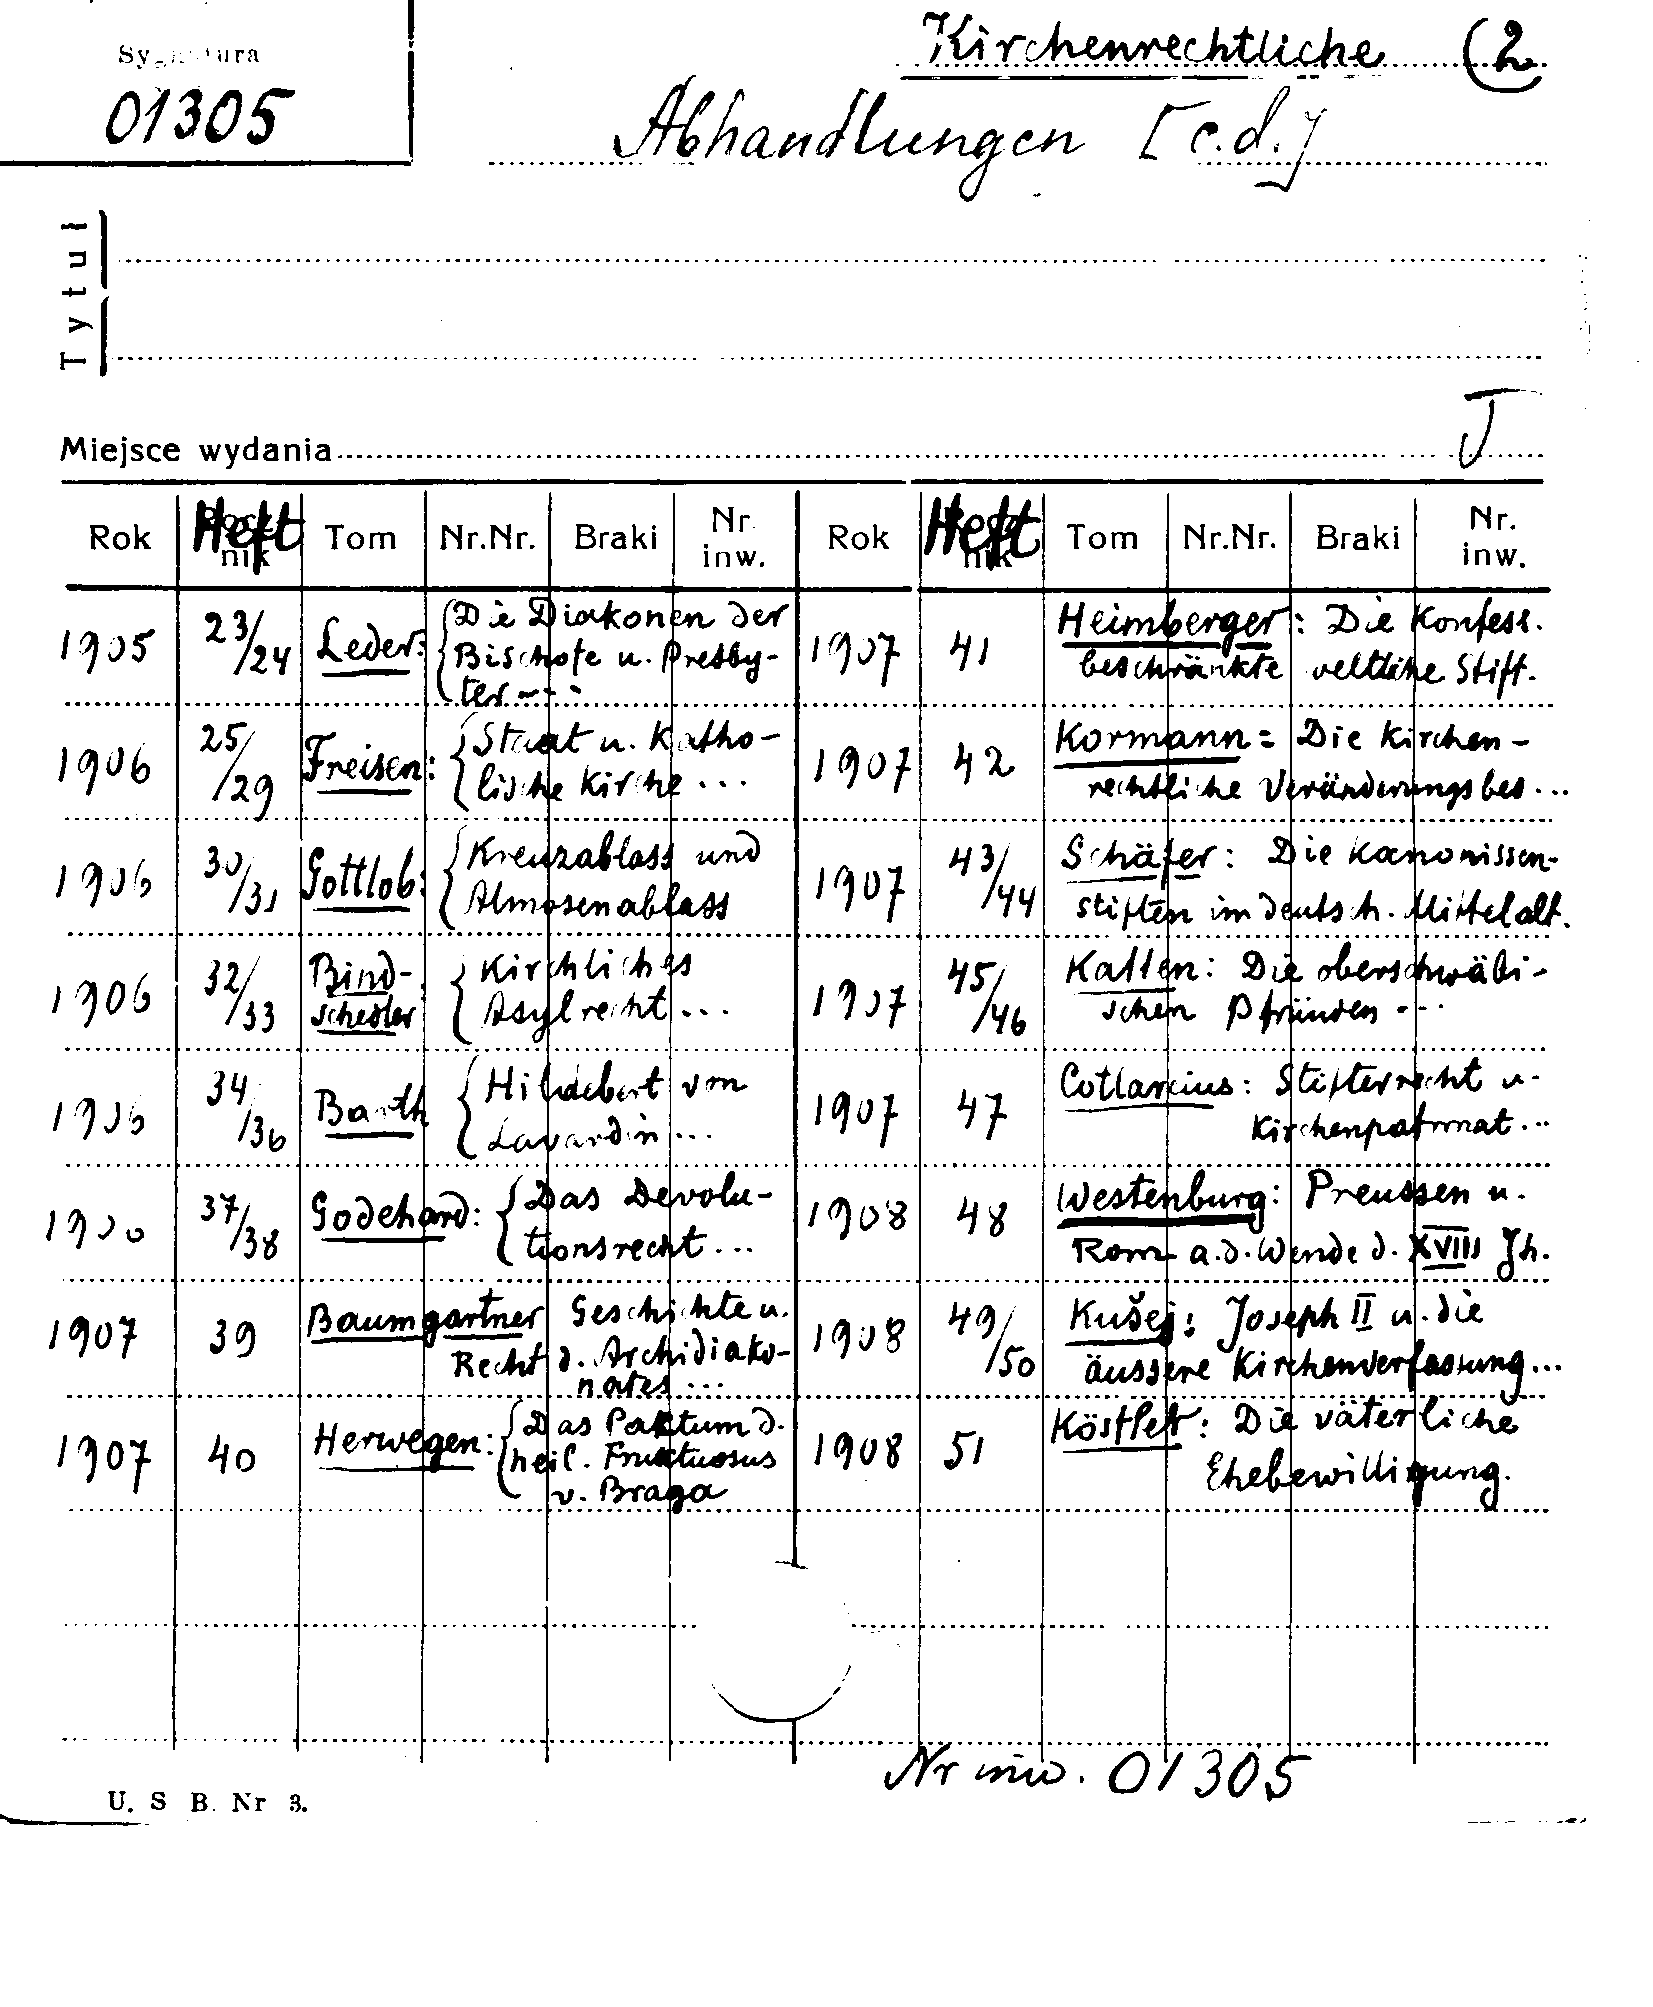 Sygnatura
01305
Kirchenrechtliche (2
Abhandlungen [c.d.]
Tytuł
Miejsce wydania
J
Rok Heft Tom Nr.Nr. Braki Nr. inw. Rok Heft Tom Nr.Nr. Braki Nr. inw.
1905 23/24 Leder: Die Diakonen der
Bischofe u. Presby-
ter ...
1906 25/29 Freisen: Staat u. Katho-
lische Kirche ...
1906 30/31 Gottlob: Kreuzablass und
Almosenablass
1906 32/33 Bind-
schedler Kirchliches
Asylrecht ...
1906 34/36 Barth Hildebert von
Lavardin ...
19 37/38 Godehard: Das Devolu-
tionsrecht ...
1907 39 Baumgartner Geschichte u.
Recht d. Archidiako-
nates ...
1907 40 Herwegen: Das Paktum d.
heil. Fruktuosus
v. Braga
1907 41 Heimberger: Die Konfess.
beschränkte veltliche Stift.
1907 42 Kormann = Die Kirchen-
rechtliche Veränderungsbes...
1907 43/44 Schäfer: Die Kanonissen-
stiften im deutsch. Mittelalt.
1907 45/46 Kallen: Die oberschwäbi-
schen Pfründen ...
1907 47 Cotlarcius: Stifterrecht u.
Kirchenpatronat ...
1908 48 Westenburg: Preussen u.
Rom a.d. Wende d. XVIII Jh.
1908 49/50 Kušej: Joseph II u. die
äussere Kirchenverfassung ...
1908 51 Köstler: Die väterliche
Ehebewilligung.
Nr inw. 01305
U. S B. Nr 3.